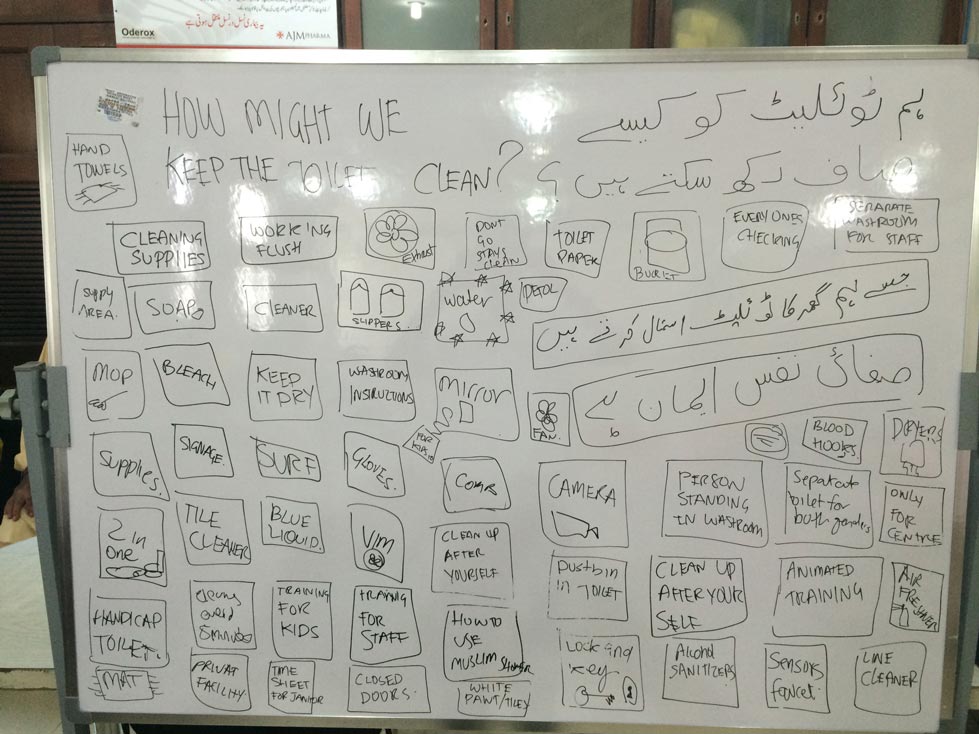 Oderox
یہ بیماری نسل در نسل منتقل ہوتی ہے
AJM PHARMA
HOW MIGHT WE
KEEP THE TOILET CLEAN?
ہم ٹوئلیٹ کو کیسے
صاف رکھ سکتے ہیں؟
HAND
TOWELS
CLEANING
SUPPLIES
WORKING
FLUSH
Exhaust
DONT
GO
STAYS
CLEAN
TOILET
PAPER
BUCKET
EVERYONES
CHECKING
SEPARATE
WASHROOM
FOR STAFF
SUPPLY
AREA.
SOAP
CLEANER
SLIPPERS
water
DETOL
جسے ہم گھر کا ٹوئلیٹ استمال کرتے ہیں
MOP
BLEACH
KEEP
IT DRY
WASHROOM
INSTRUCTIONS
MIRROR
FOR
KIDS
FAN.
صفائی نفس ایمان ہے
BLOOD
HOOKS
DRYERS
SUPPLIES.
SIGNAGE.
SURF
GLOVES.
COMB
CAMERA
PERSON
STANDING
IN WASHROOM
Separate
toilet for
both genders
ONLY
FOR
CENTRE
2 in
One
TILE
CLEANER
BLUE
LIQUID.
VIM
CLEAN UP
AFTER
YOURSELF
Dustbin
in TOILET
CLEAN UP
AFTER YOUR
SELF
ANIMATED
TRAINING
AIR
FRESHNER
HANDICAP
TOILET.
5minutes
TRAINING
FOR
KIDS
TRAINING
FOR
STAFF
HOW TO
USE
MUSLIM Shower
Locking
key
Alcohol
SANITIZERS
Sensors
faucet.
LINE
CLEANER
MAT
PRIVAT
FACILITY
TIME
SHEET
FOR JANITOR
CLOSED
DOORS.
WHITE
PAINT/TILES